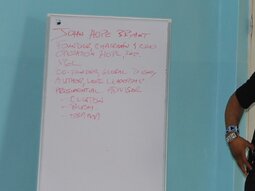 JOHN HOPE BRYANT
FOUNDER, CHAIRMAN & CEO
OPERATION HOPE, INC.
CO-FOUNDER, GLOBAL DIGNITY
AUTHOR, LOVE LEADERSHIP
PRESIDENTIAL ADVISOR
- CLINTON
- BUSH
- OBAMA